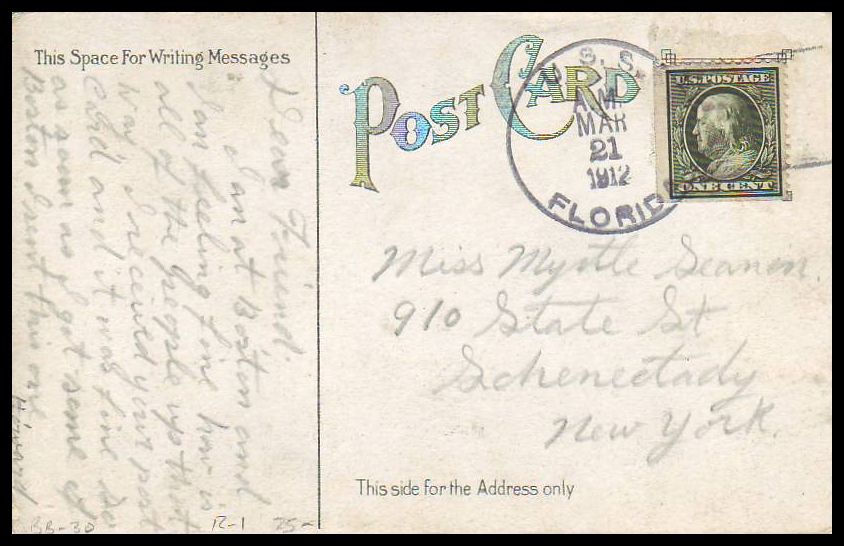 This Space For Writing Messages
POST CARD
U. S. S.
A.M.
MAR
21
1912
FLORIDA
U.S. POSTAGE
ONE CENT
Dear Friend.
I am at Boston and
I am feeling fine how is
all of the people up that
way I received your post
card and it was fine
as soon as I get some of
Boston I sent this one
Howard
Miss Myrtle
910 State St
Schenectady
New York.
This side for the Address only
BB-30
R-1
25-